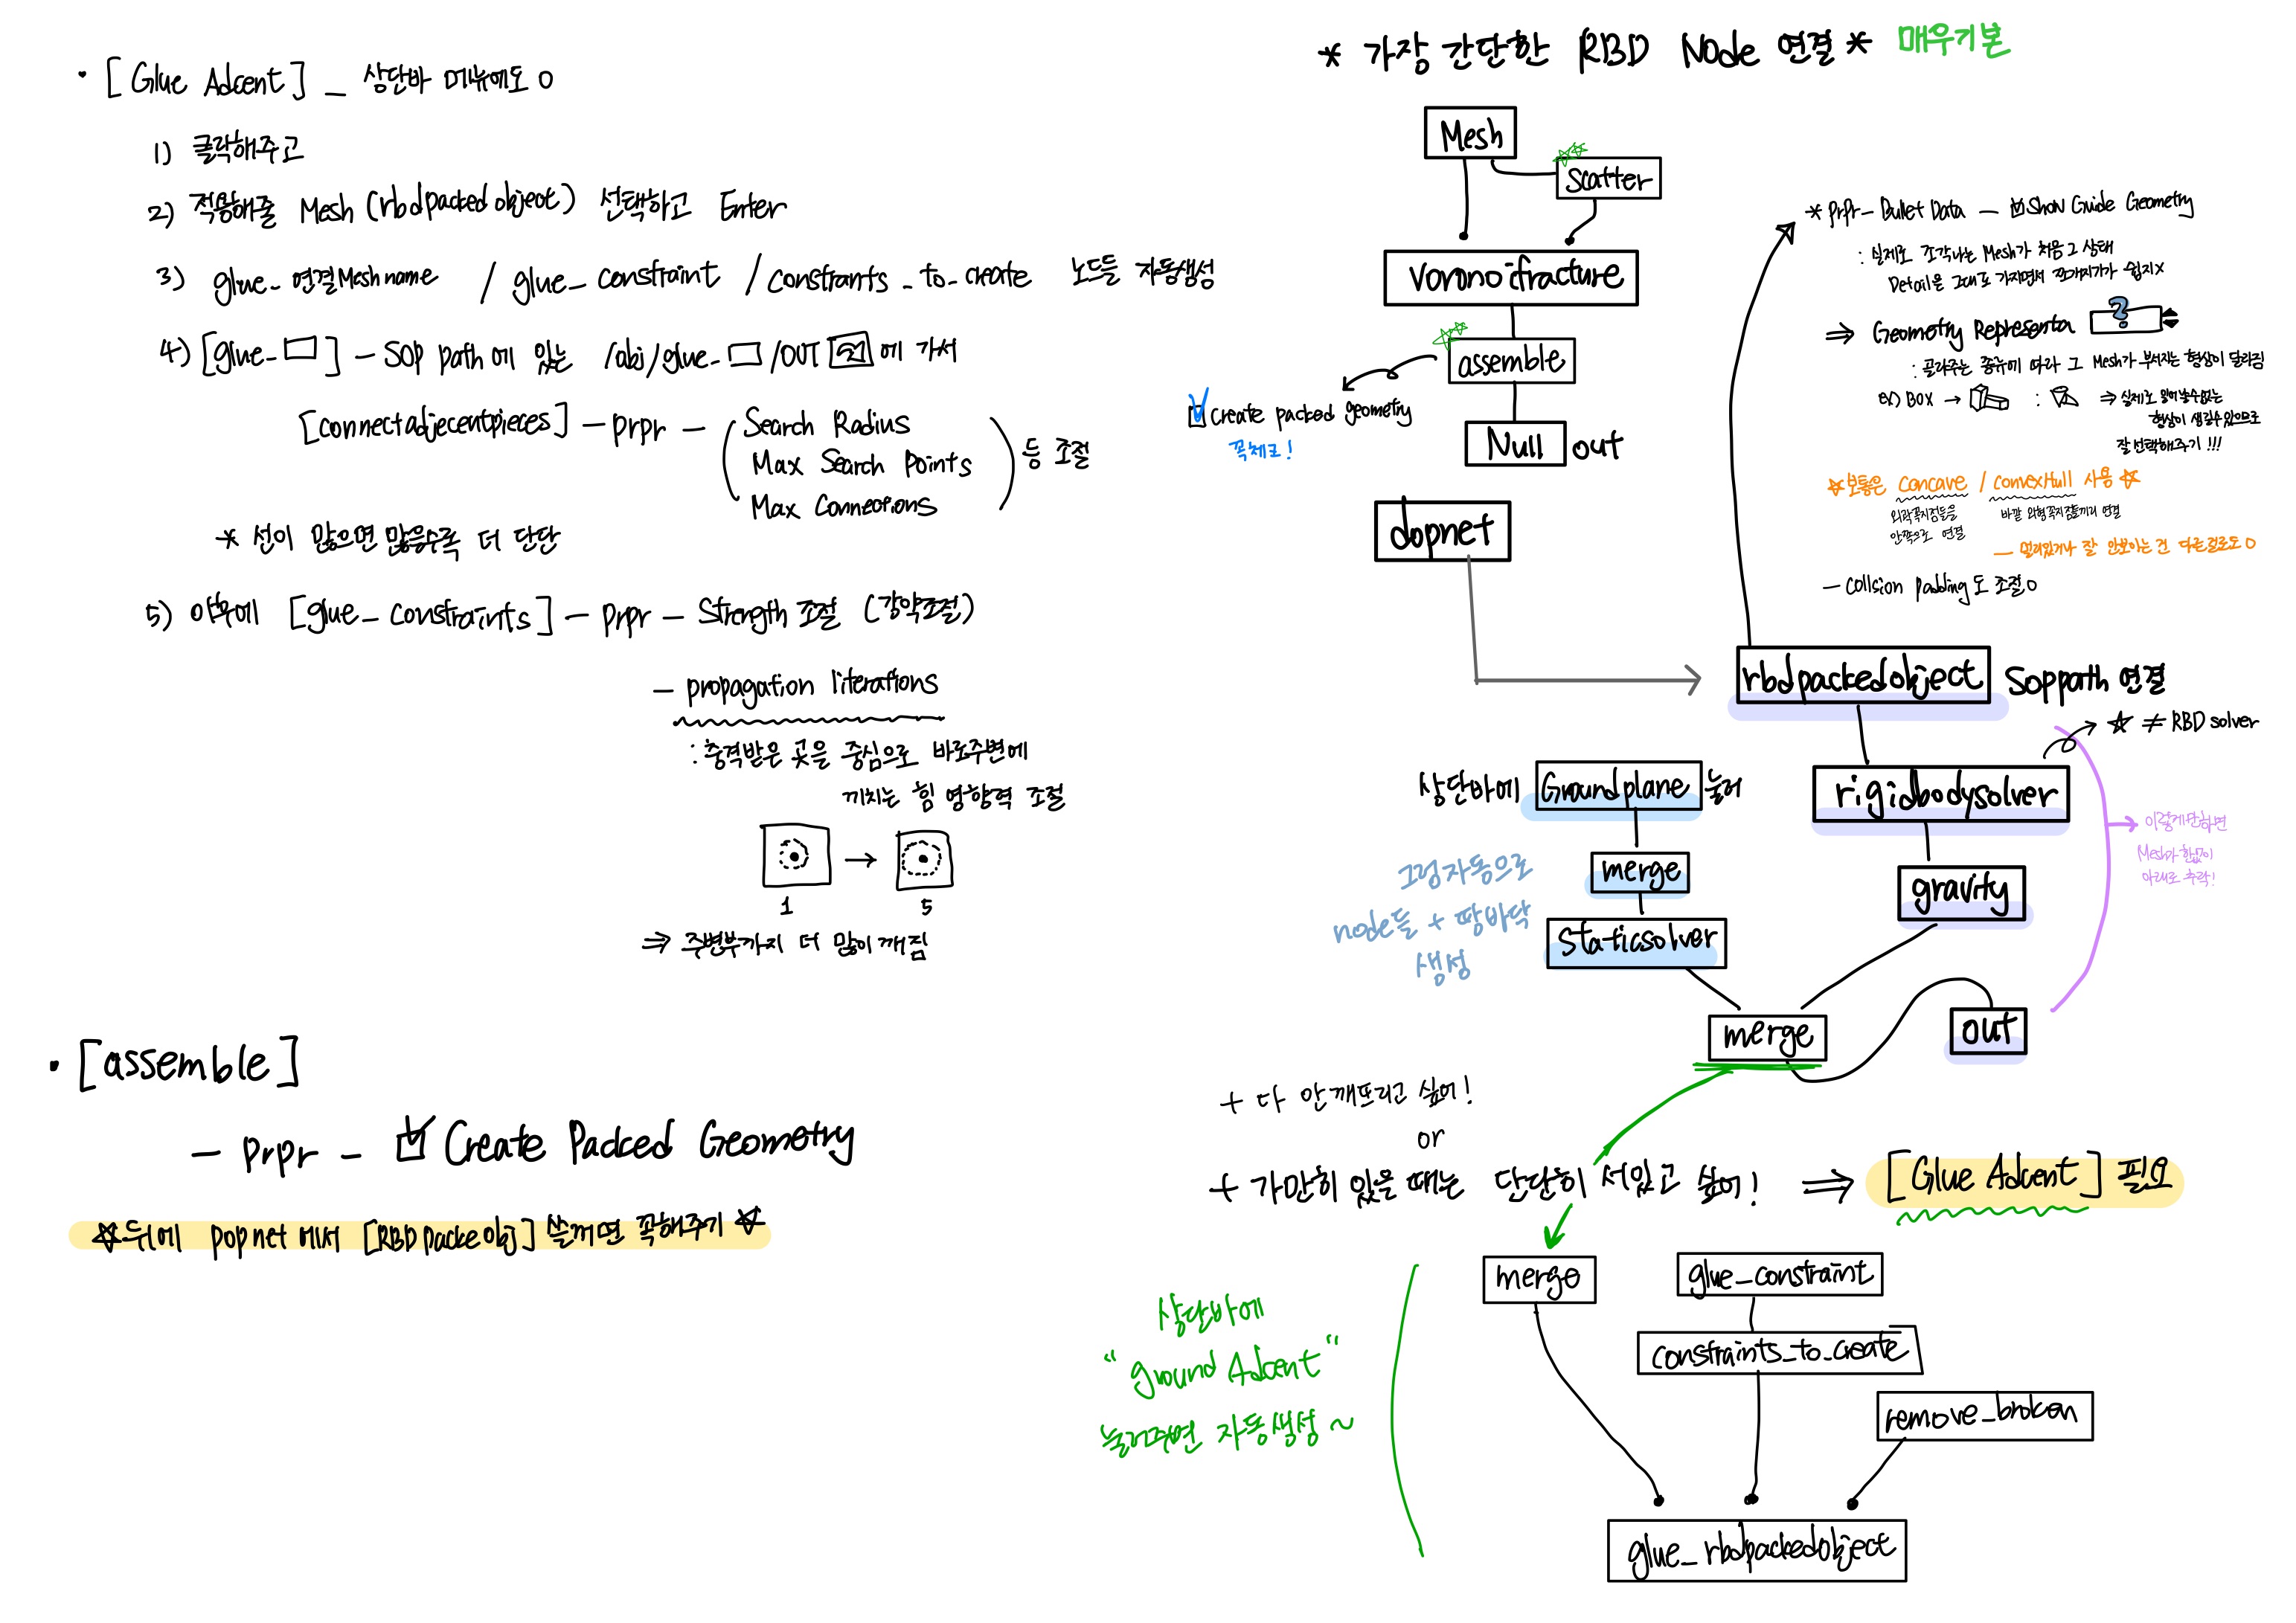 · [Glue Adcent] _ 상단바 메뉴에도 O
1) 클릭해주고
2) 적용해줄 Mesh (rbdpackedobject) 선택하고 Enter
3) glue_연결Meshname / glue_constraint / constraints_to_create 노드들 자동생성
4) [glue_□] - SOP path에 있는 /obj/glue_□/OUT 에 가서
[connectadjecentpieces] - prpr - Search Radius
Max Search Points
Max Connections
등 조절
* 선이 많으면 많을수록 더 단단
5) 이후에 [glue_constraints] - prpr - Strength 조절 (강약조절)
- propagation literations
: 충격받은 곳을 중심으로 바로주변에
끼치는 힘 영향력 조절
1 → 5
⇒ 주변부까지 더 많이 깨짐
· [assemble]
- prpr - ☑ Create Packed Geometry
☆뒤에 popnet에서 [RBD packeobj] 쓸꺼면 꼭해주기☆
* 가장 간단한 RBD Node 연결 * 매우기본
Mesh
scatter
voronoifracture
assemble
☑ create packed geometry
꼭체크!
Null out
dopnet
* prpr - Bullet Data - ☑ Show Guide Geometry
: 실제로 조각나는 Mesh가 처음 그 상태
Detail은 그대로 가지면서 쪼개지기가 쉽지X
⇒ Geometry Representa ?
: 골라주는 종류에 따라 그 Mesh가 부서지는 형상이 달라짐
ex) BOX → : ⇒ 실제로 일어날수없는
형상이 생길수있으므로
잘 선택해주기 !!!
☆보통은 Concave / convexHull 사용☆
외곽꼭지점들을
안쪽으로 연결
바깥 외형꼭지점들끼리 연결
- 멀리있거나 잘 안보이는 건 다른걸로도 O
- Collsion padding도 조절 O
rbdpackedobject Soppath 연결
☆ ≠ RBD solver
rigidbodysolver
상단바에 Groundplane 눌러
이렇게만하면
Mesh가 한없이
아래로 추락!
merge
gravity
그럼 자동으로
node들 + 땅바닥
생성
staticsolver
merge
out
+ 다 안 깨뜨리고 싶어!
or
+ 가만히 있을 때는 단단히 서있고 싶어! ⇒ [Glue Adcent] 필요
merge
glue_constraint
상단바에
"ground Adcent"
눌러주면 자동생성 ~
constraints_to_create
remove_broken
glue_rbdpackedobject